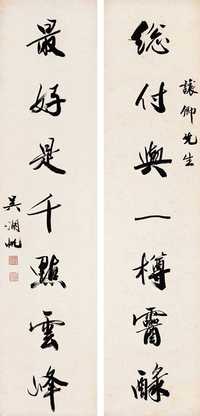 讓卿先生
總付與一樽醽醁
最好是千點雲峰
吳湖帆